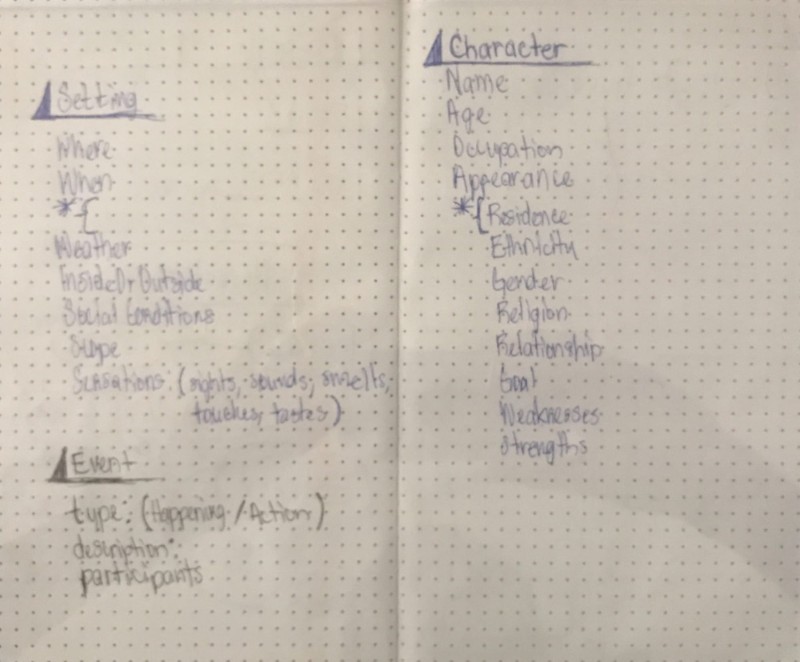 Setting
Where
When
*{
Weather
Inside Or Outside
Social Conditions
Scope
Sensations (sights, sounds, smells,
touches, tastes)
Event
type: (Happening / Action)
description:
participants
Character
Name
Age
Occupation
Appearance
*{Residence
Ethnicity
Gender
Religion
Relationship
Goal
Weaknesses
Strengths